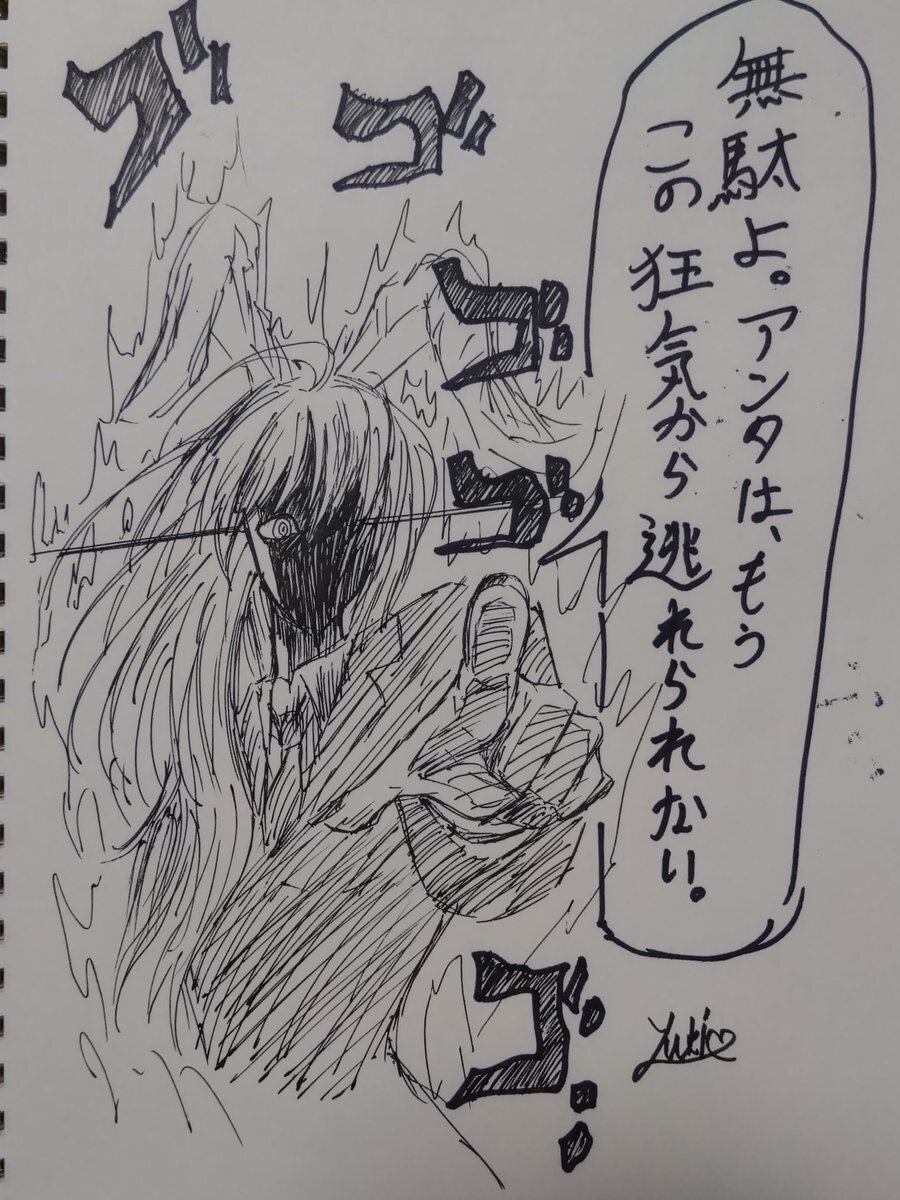 無駄よ。アンタは、もう
この狂気から逃れられない。
ゴ
ゴ
ゴ
ゴ
ゴ
Yuki